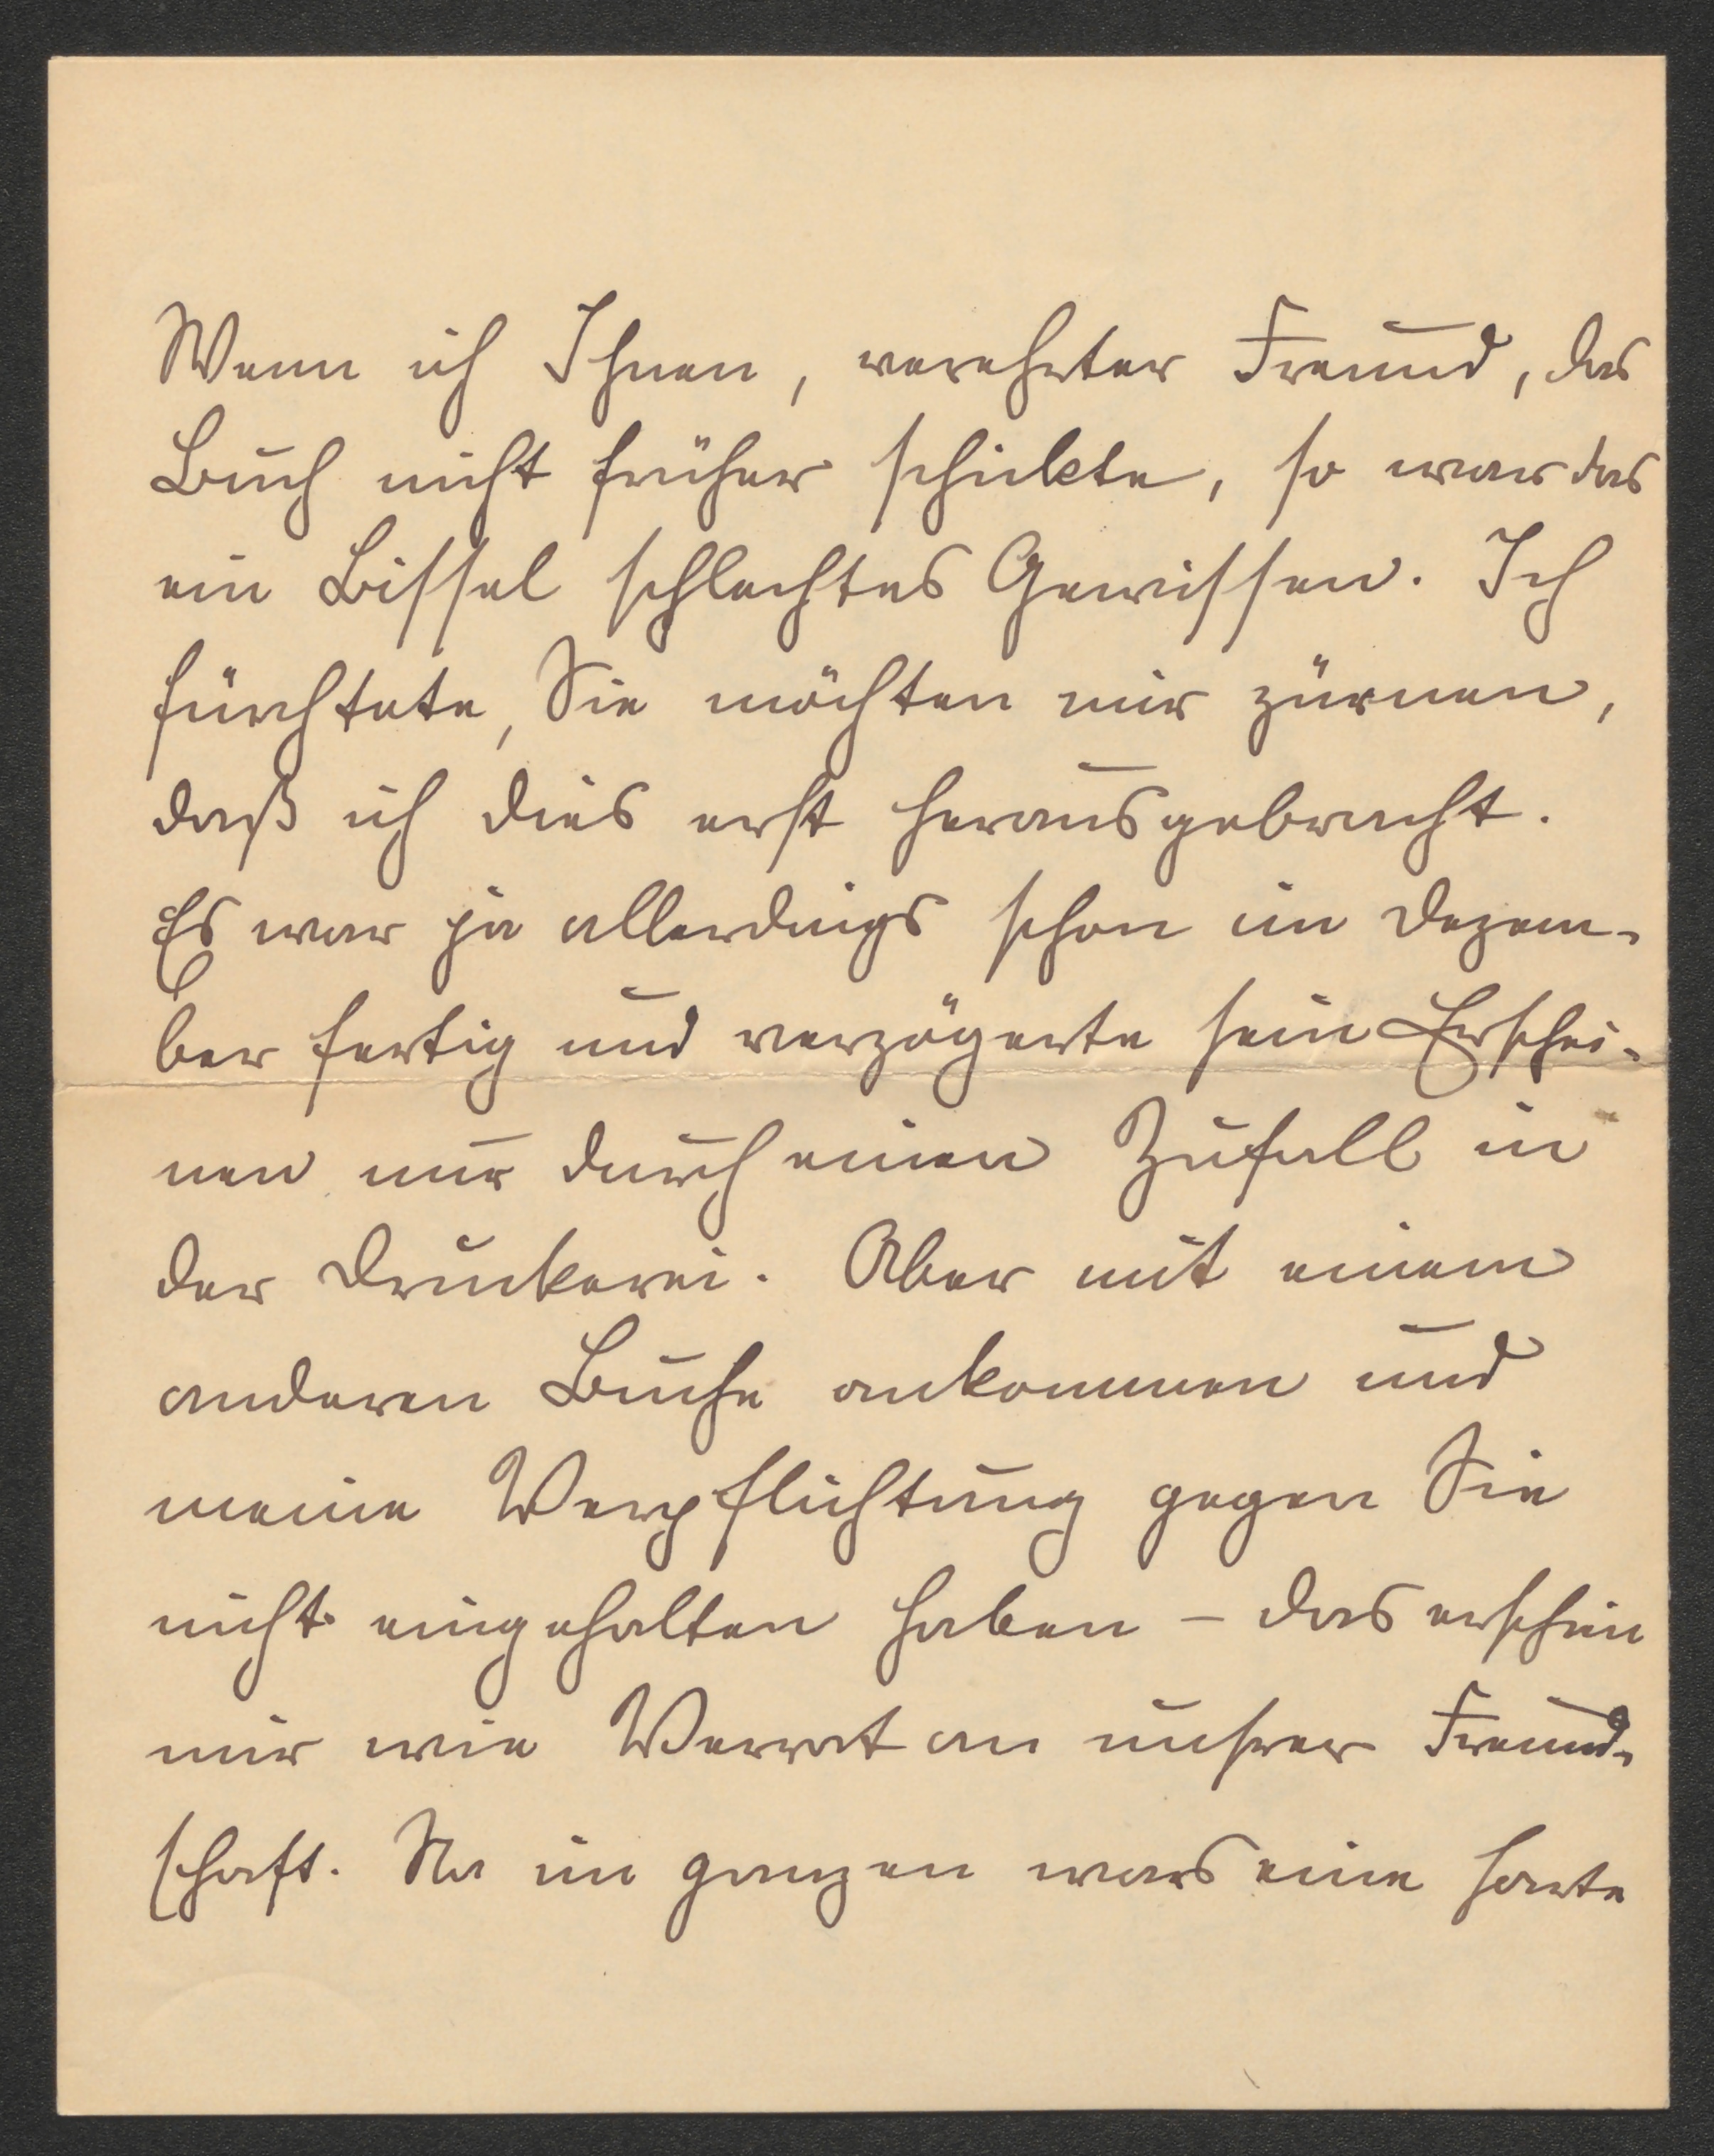 Wenn ich Ihnen, verehrter Freund, das
Buch nicht früher schickte, so war das
ein Bissel schlechtes Gewissen. Ich
fürchtete, Sie möchten mir zürnen,
daß ich dies erst herausgebracht.
Es war ja allerdings schon im Dezem-
ber fertig und verzögerte sein Erschei-
nen nur durch einen Zufall in
der Druckerei. Aber mit einem
anderen Buche ankommen und
meine Verpflichtung gegen Sie
nicht eingehalten haben – das erschien
mir wie Verrat an unsrer Freund-
schaft. Na im ganzen wars eine harte